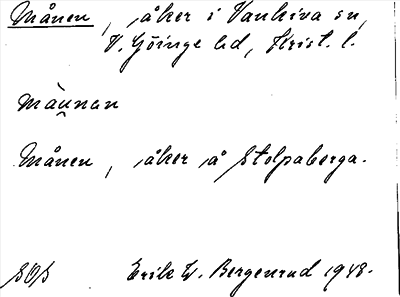 Månen, åker i Vankiva sn,
V. Göinge hd, Krist. l.
månnan
Månen, åker å Stolpaberga.
SOS Erik W. Bergenrud 1948.